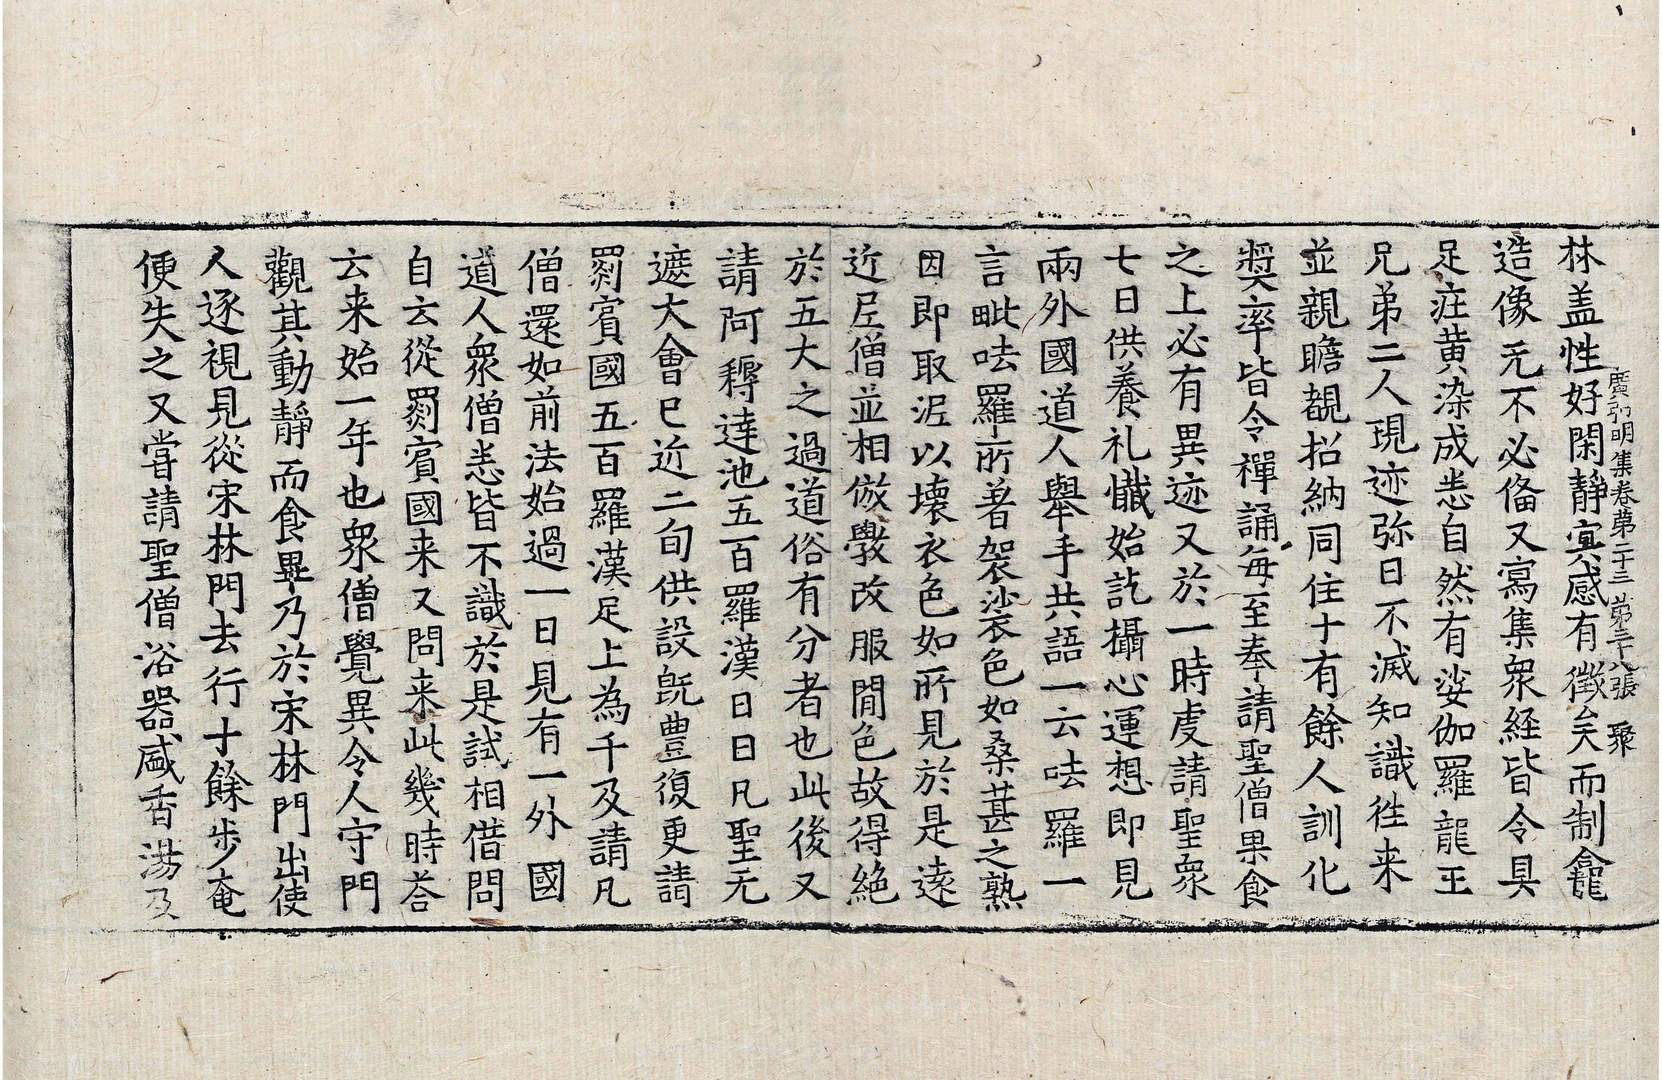 廣弘明集卷第二十三　第三十八張　聚
林盖性好閑靜冥感有徵矣而制龕
造像无不必俻又寫集衆経皆令具
足莊黄染成悉自然有娑伽羅龍王
兄弟二人現迹弥日不滅知識徃来
並親瞻覩招納同住十有餘人訓化
奬率皆令禪誦每至奉請聖僧果食
之上必有異迹又於一時虔請聖衆
七日供養礼懺始訖攝心運想即見
兩外國道人舉手共語一云呿羅一
言毗呿羅所著袈裟色如桑葚之熟
因即取泥以壊衣色如所見於是遠
近尼僧並相倣斆改服閒色故得絶
於五大之過道俗有分者也此後又
請阿耨達池五百羅漢日日凡聖无
遮大會已近二旬供設旣豊復更請
罽賓國五百羅漢足上為千及請凡
僧還如前法始過一日見有一外國
道人衆僧悉皆不識於是試相借問
自云從罽賓國来又問来此幾時荅
云来始一年也衆僧覺異令人守門
觀其動靜而食畢乃於宋林門出使
人逐視見從宋林門去行十餘步奄
便失之又嘗請聖僧浴器盛香湯及